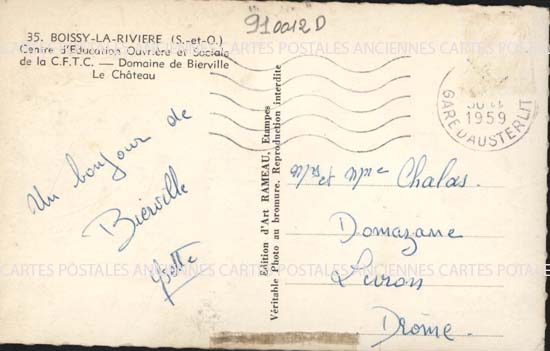 910012D
35. BOISSY-LA-RIVIERE (S.-et-O.)
Centre d'Education Ouvrière et Sociale
de la C.F.T.C. — Domaine de Bierville
Le Château
1959
GARE D'AUSTERLIT
Un bonjour de
Bierville
Yvette
Edition d'Art RAMEAU, Etampes
Véritable Photo au bromure. Reproduction interdite
Mrs et Mme Chalas.
Domazane
Livron
Drôme.
ANCIENNES CARTES POSTALES ANCIENNES CARTES POSTALES ANCIENNES CARTES POTALES